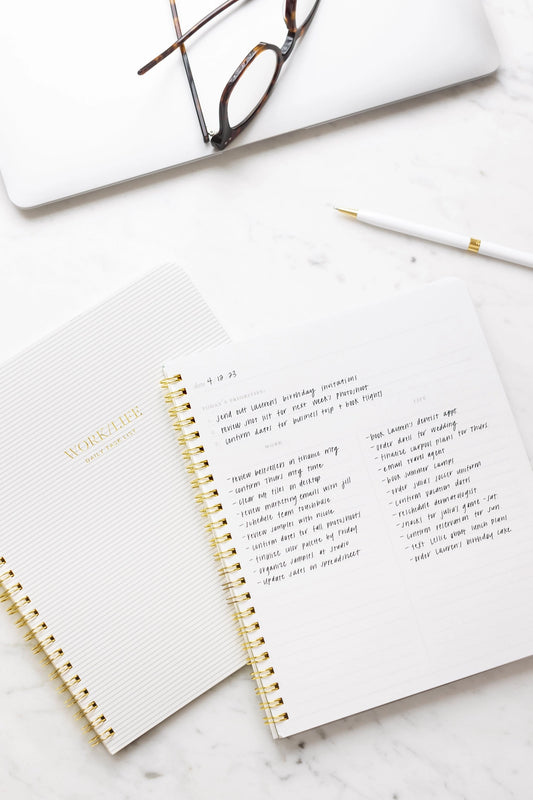 WORK/LIFE
DAILY TASK LIST
date 4 12 23
TODAY'S PRIORITIES:
send out Lauren's birthday invitations
review shot list for next week's photoshoot
confirm dates for business trip + book flights
WORK
- review bestsellers in finance mtg
- confirm Thurs mtg time
- clear out files on desktop
- review marketing emails with Jill
- schedule team touchbase
- review samples with Nicole
- confirm dates for fall photoshoots
- finalize color palette by Friday
- organize samples at studio
- update sales on spreadsheet
LIFE
- book Lauren's dentist appt
- order dates for wedding
- finalize carpool plans for Thurs
- email travel agent
- book summer camps
- order Julia's soccer uniform
- confirm vacation dates
- reschedule dermatologist
- snacks for Julia's game - Sat
- confirm restaurant for Sun
- text Leslie about lunch plans
- order Lauren's birthday cake